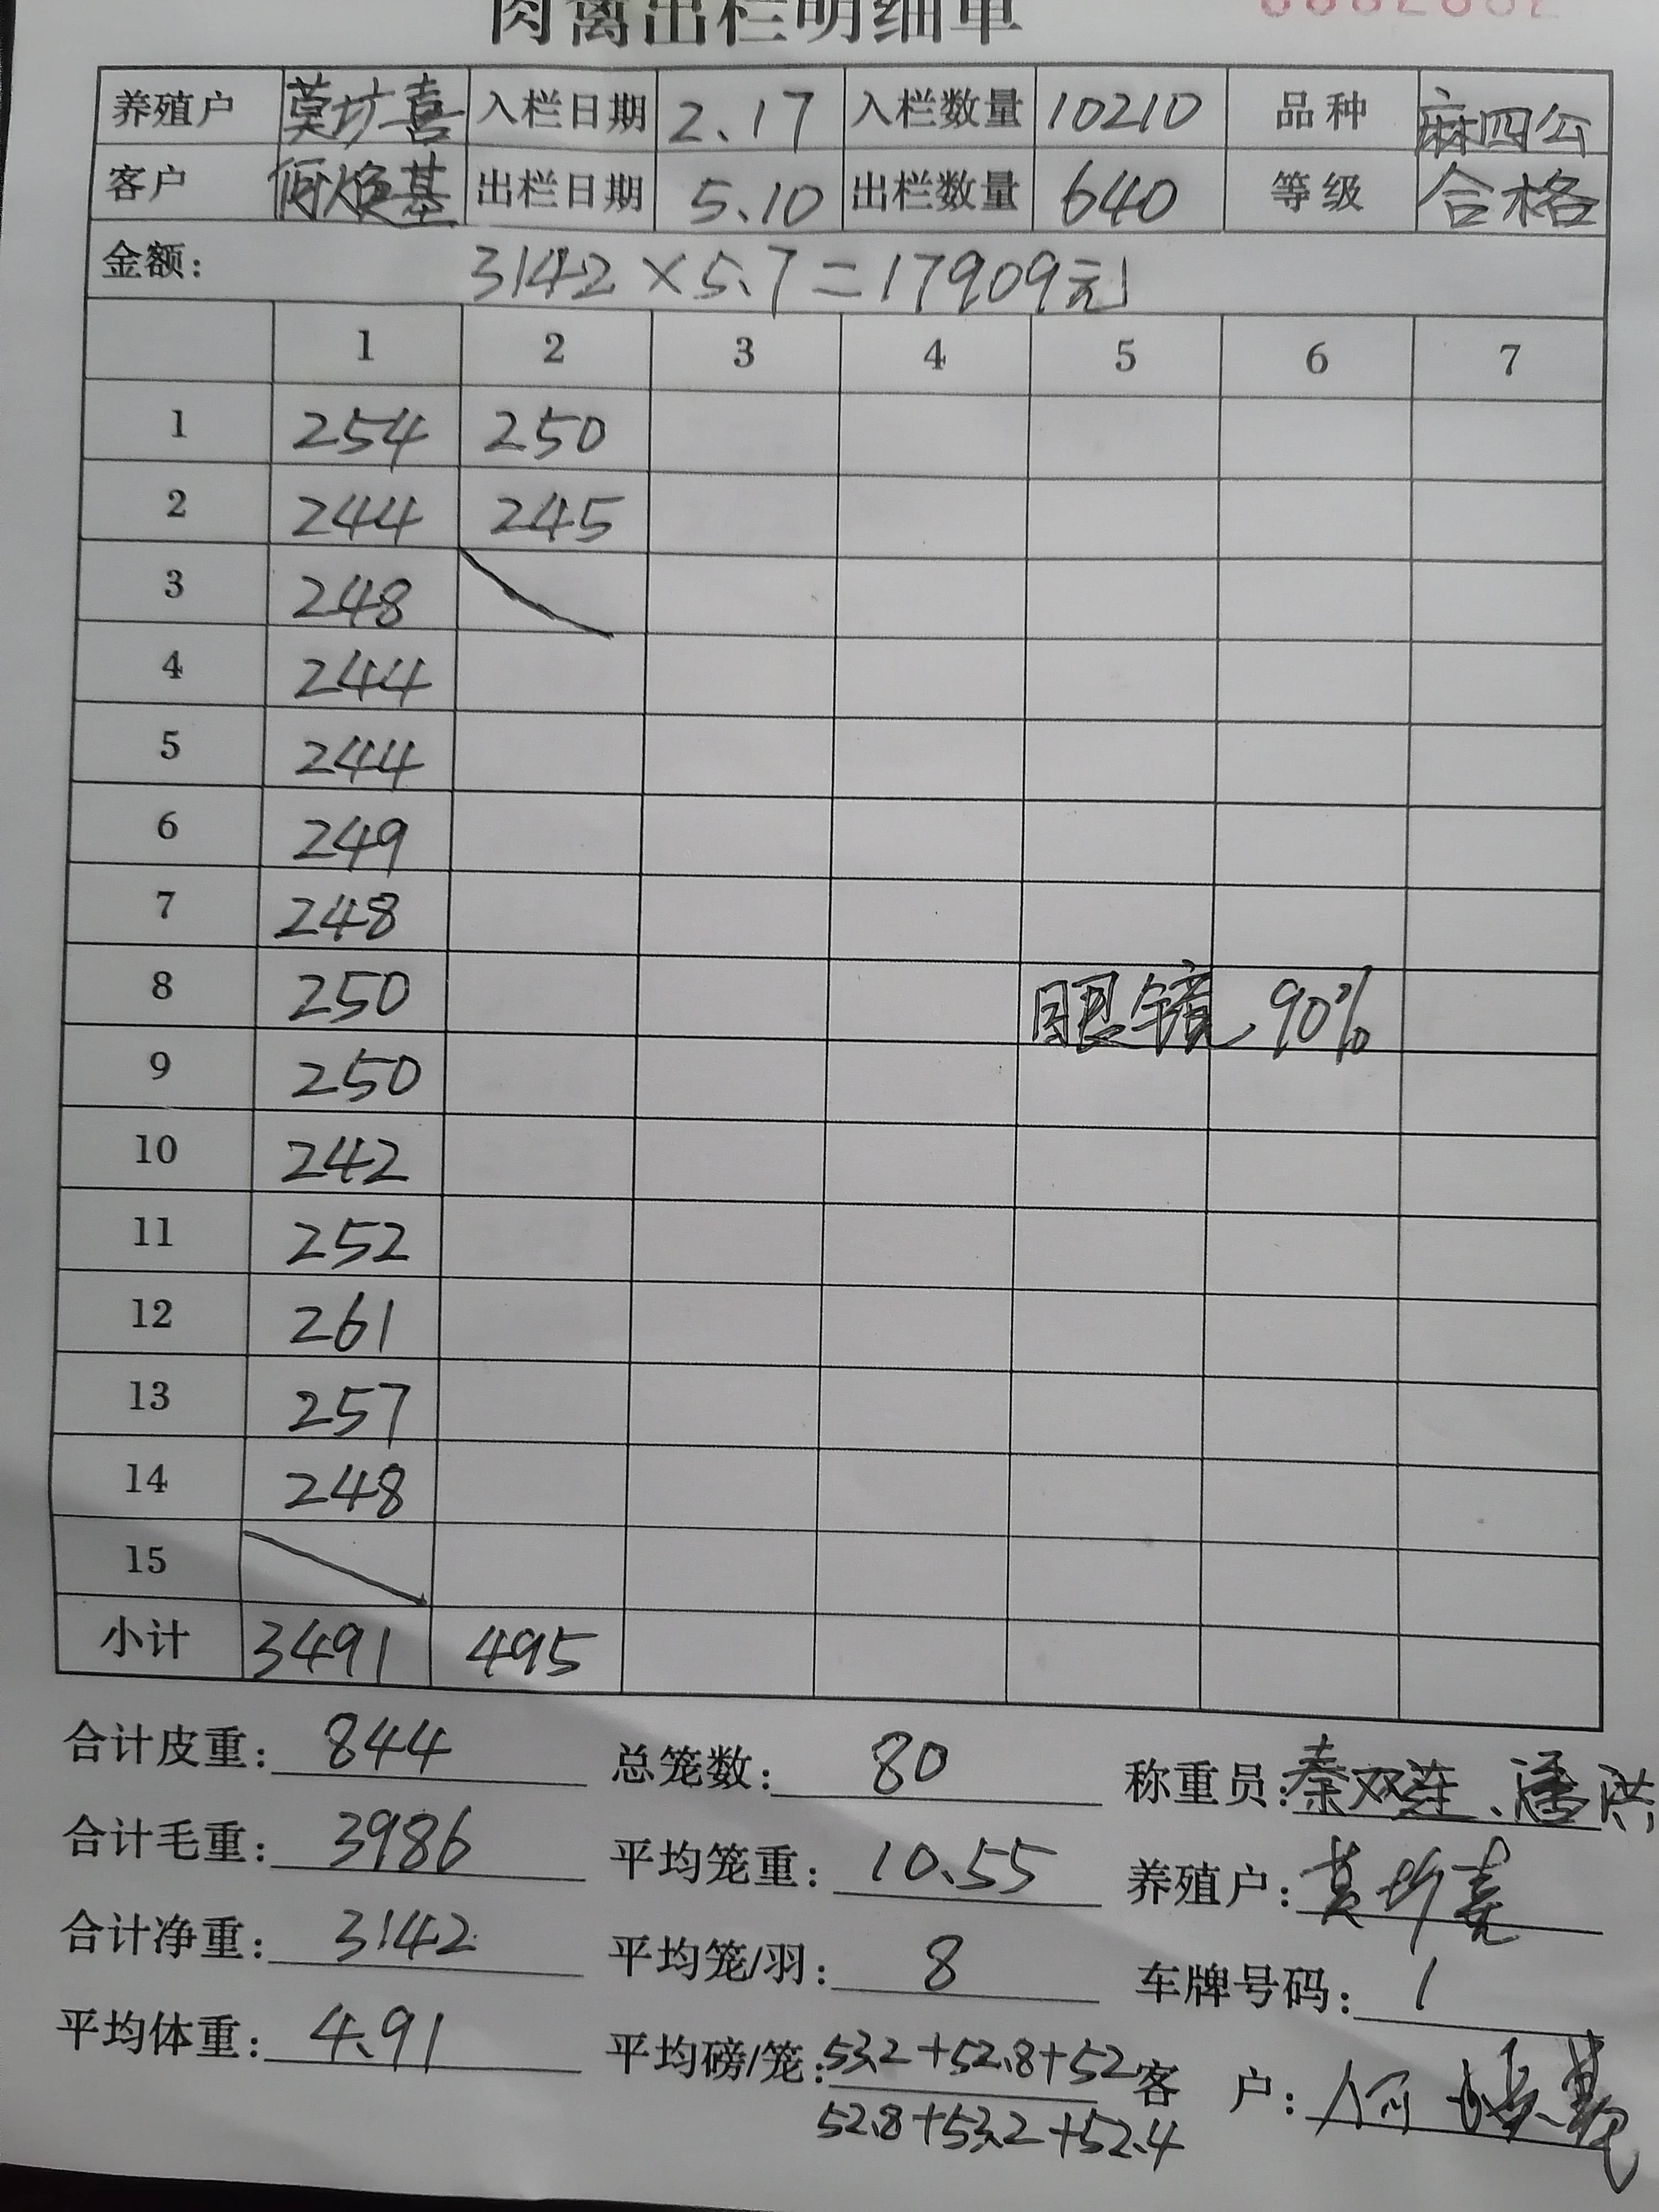 肉禽出栏明细单
养殖户 莫坊喜 入栏日期 2.17 入栏数量 10210 品种 麻四公
客户 何焕基 出栏日期 5.10 出栏数量 640 等级 合格
金额: 3142×5.7=17909元
1 2 3 4 5 6 7
1 254 250
2 244 245
3 248
4 244
5 244
6 249
7 248
8 250 眼镜 90%
9 250
10 242
11 252
12 261
13 257
14 248
15
小计 3491 495
合计皮重: 844 总笼数: 80 称重员: 秦双莲、潘洪
合计毛重: 3986 平均笼重: 10.55 养殖户: 莫坊喜
合计净重: 3142 平均笼/羽: 8 车牌号码: 1
平均体重: 4.91 平均磅/笼: 53.2+52.8+52 客 户: 何焕基
52.8+53.2+52.4